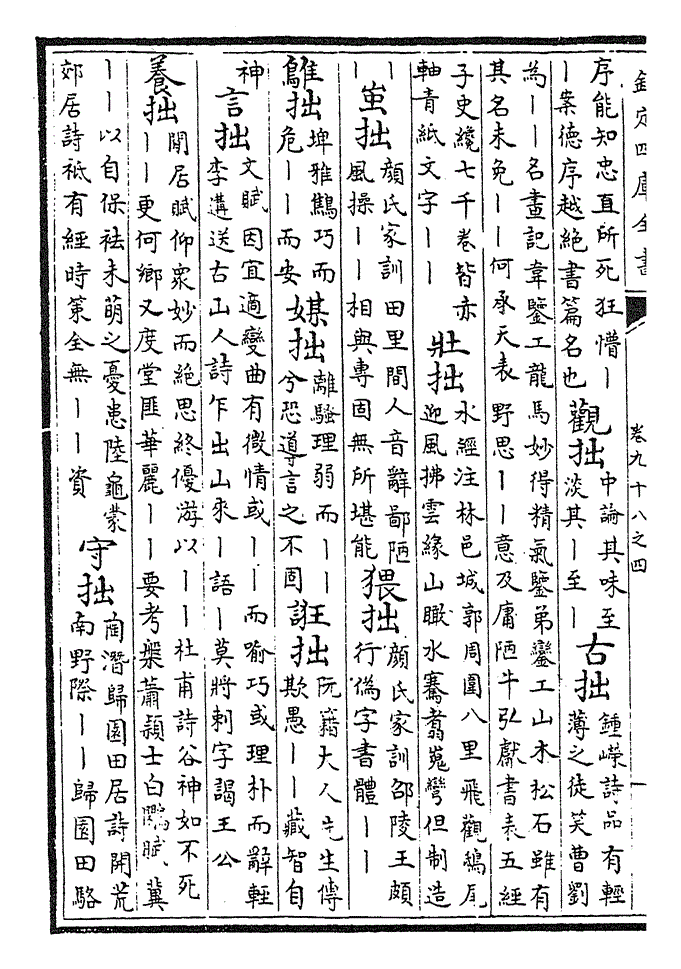 欽定四庫全書
卷九十八之四
序能知忠直所死狂懵丨
丨案德序越絕書篇名也
觀拙
中論其味至
淡其丨至丨
古拙
鍾嶸詩品有輕
薄之徒笑曹劉
為丨丨名畫記韋鑒工龍馬妙得精氣鑒弟鑾工山水松石雖有
其名未免丨丨何承天表野思丨丨意及庸陋牛弘獻書表五經
子史纔七千卷皆亦
軸青紙文字丨丨
壯拙
水經注林邑城郭周圍八里飛觀鴟尾
迎風拂雲緣山瞰水騫翥嵬崿但制造
丨
丨
蚩拙
顔氏家訓田里間人音辭鄙陋
風操丨丨相與專固無所堪能
猥拙
顔氏家訓邵陵王頗
行偽字書體丨丨
雖拙
埤雅鷦巧而
危丨丨而安
媒拙
離騷理弱而丨丨
兮恐導言之不固
誑拙
阮籍大人先生傳
欺愚丨丨藏智自
神
言拙
文賦因宜適變曲有微情或丨丨而喻巧或理朴而辭輕
李遘送古山人詩乍出山來丨語丨莫將刺字謁王公
養拙
閒居賦仰衆妙而絕思終優游以丨丨杜甫詩谷神如不死
丨丨更何鄉又度堂匪華麗丨丨要考槃蕭頴士白鷴賦冀
丨丨以自保祛未萌之憂患陸龜蒙
郊居詩祗有經時策全無丨丨資
守拙
陶潛歸園田居詩開荒
南野際丨丨歸園田駱